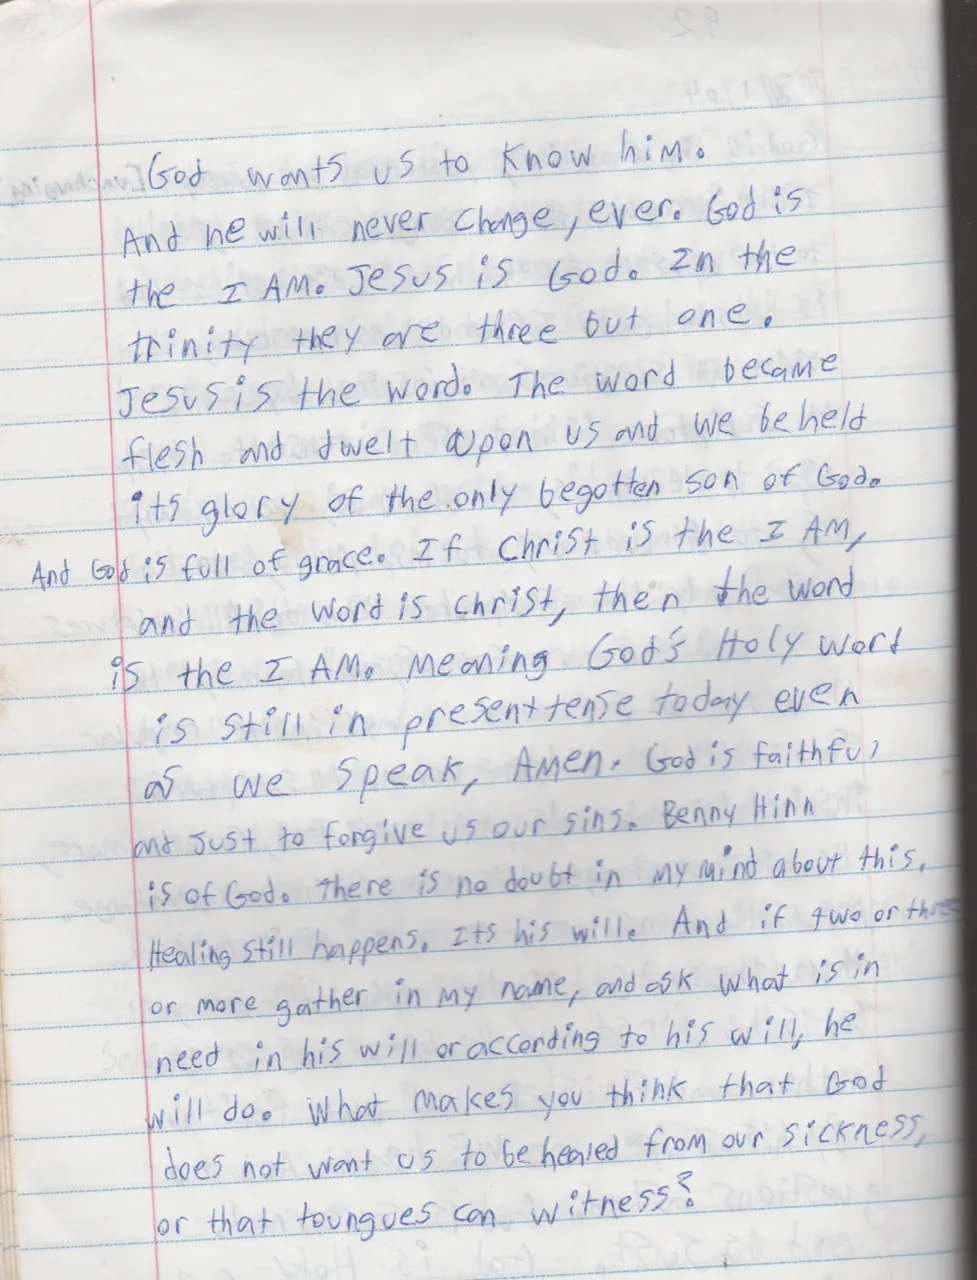 God wants us to know him.
And he will never change, ever. God is
the I AM. Jesus is God. In the
trinity they are three but one.
Jesus is the word. The word became
flesh and dwelt upon us and we beheld
its glory of the only begotten son of God.
And God is full of grace. If Christ is the I AM,
and the word is Christ, then the word
is the I AM. Meaning God's Holy word
is still in present tense today even
as we speak, Amen. God is faithful
and just to forgive us our sins. Benny Hinn
is of God. There is no doubt in my mind about this.
Healing still happens. Its his will. And if two or three
or more gather in my name, and ask what is in
need in his will or according to his will, he
will do. What makes you think that God
does not want us to be healed from our sickness,
or that toungues can witness?